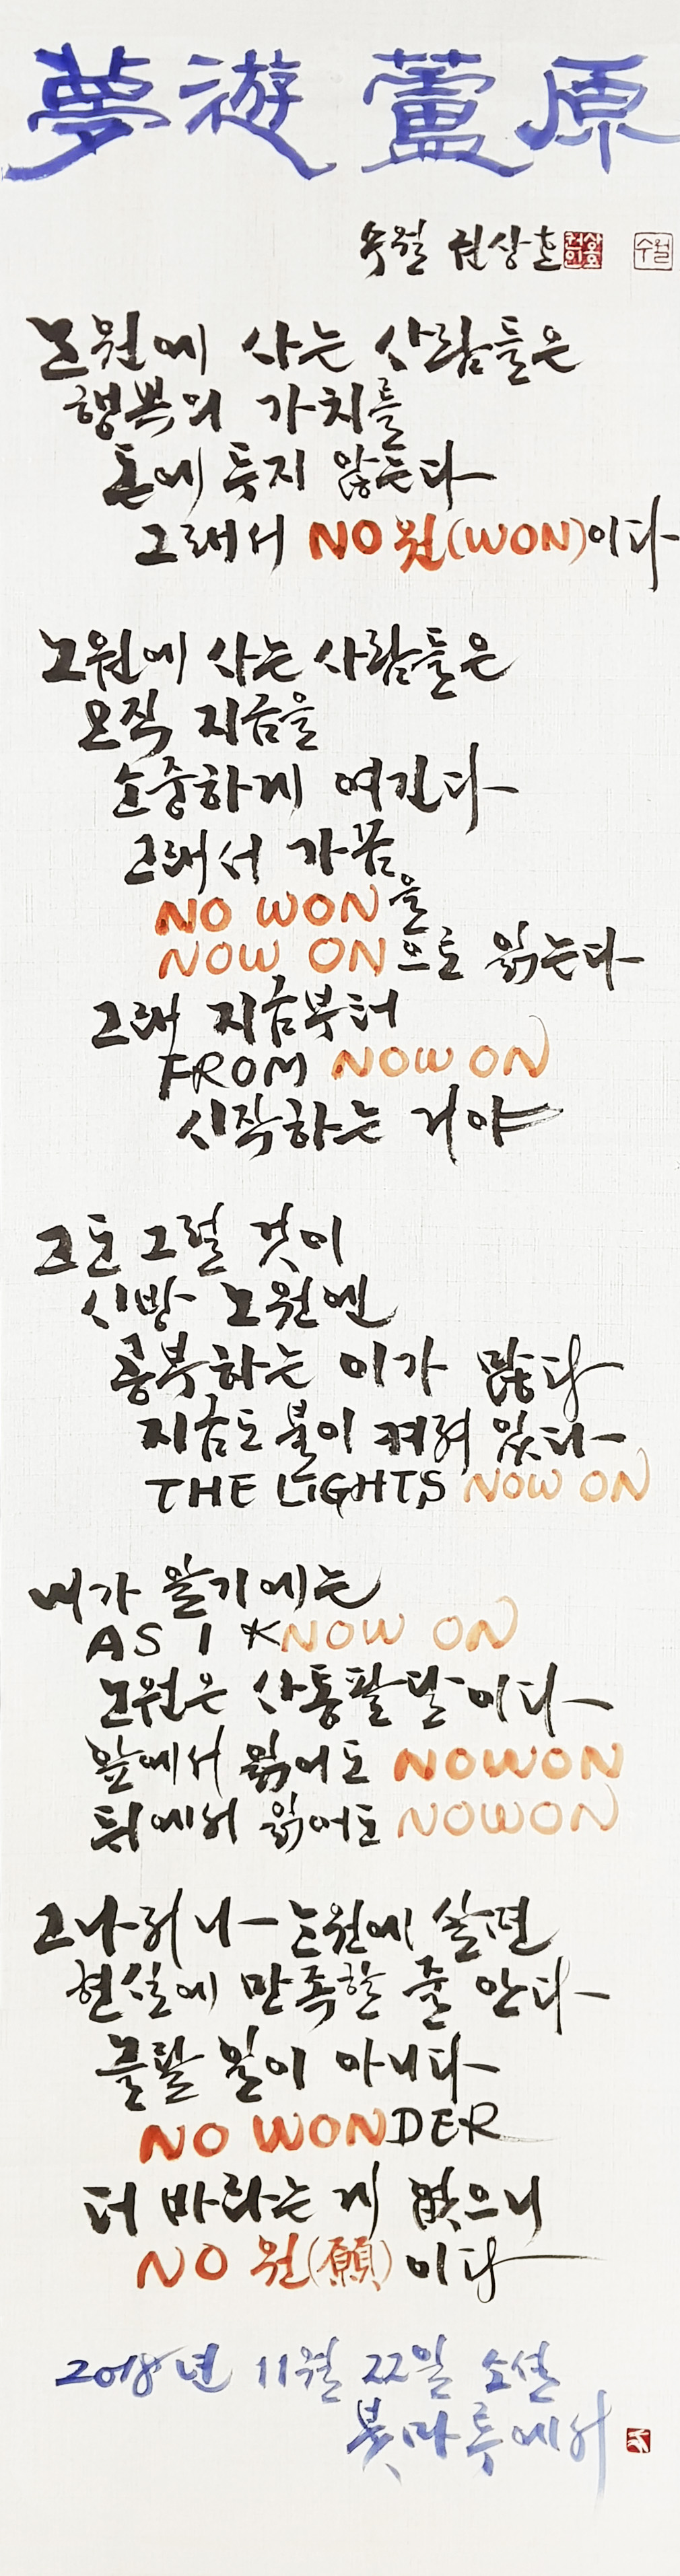 夢遊蘆原
수월 권상호
수월
노원에 사는 사람들은
행복의 가치를
돈에 두지 않는다
그래서 NO원(WON)이다
노원에 사는 사람들은
오직 지금을
소중하게 여긴다
그래서 가끔
NO WON을
NOW ON으로 읽는다
그래 지금부터
FROM NOW ON
시작하는 거야
그도 그럴 것이
시방 노원엔
공부하는 이가 많다
지금도 불이 켜져 있다
THE LIGHTS NOW ON
내가 알기에는
AS I KNOW ON
노원은 사통팔달이다
앞에서 읽어도 NOWON
뒤에서 읽어도 NOWON
그나저나 노원에 살면
현실에 만족할 줄 안다
놀랄 일이 아니다
NO WONDER
더 바라는 게 없으니
NO 원(願)이다
2018년 11월 22일 소설
붓마루에서